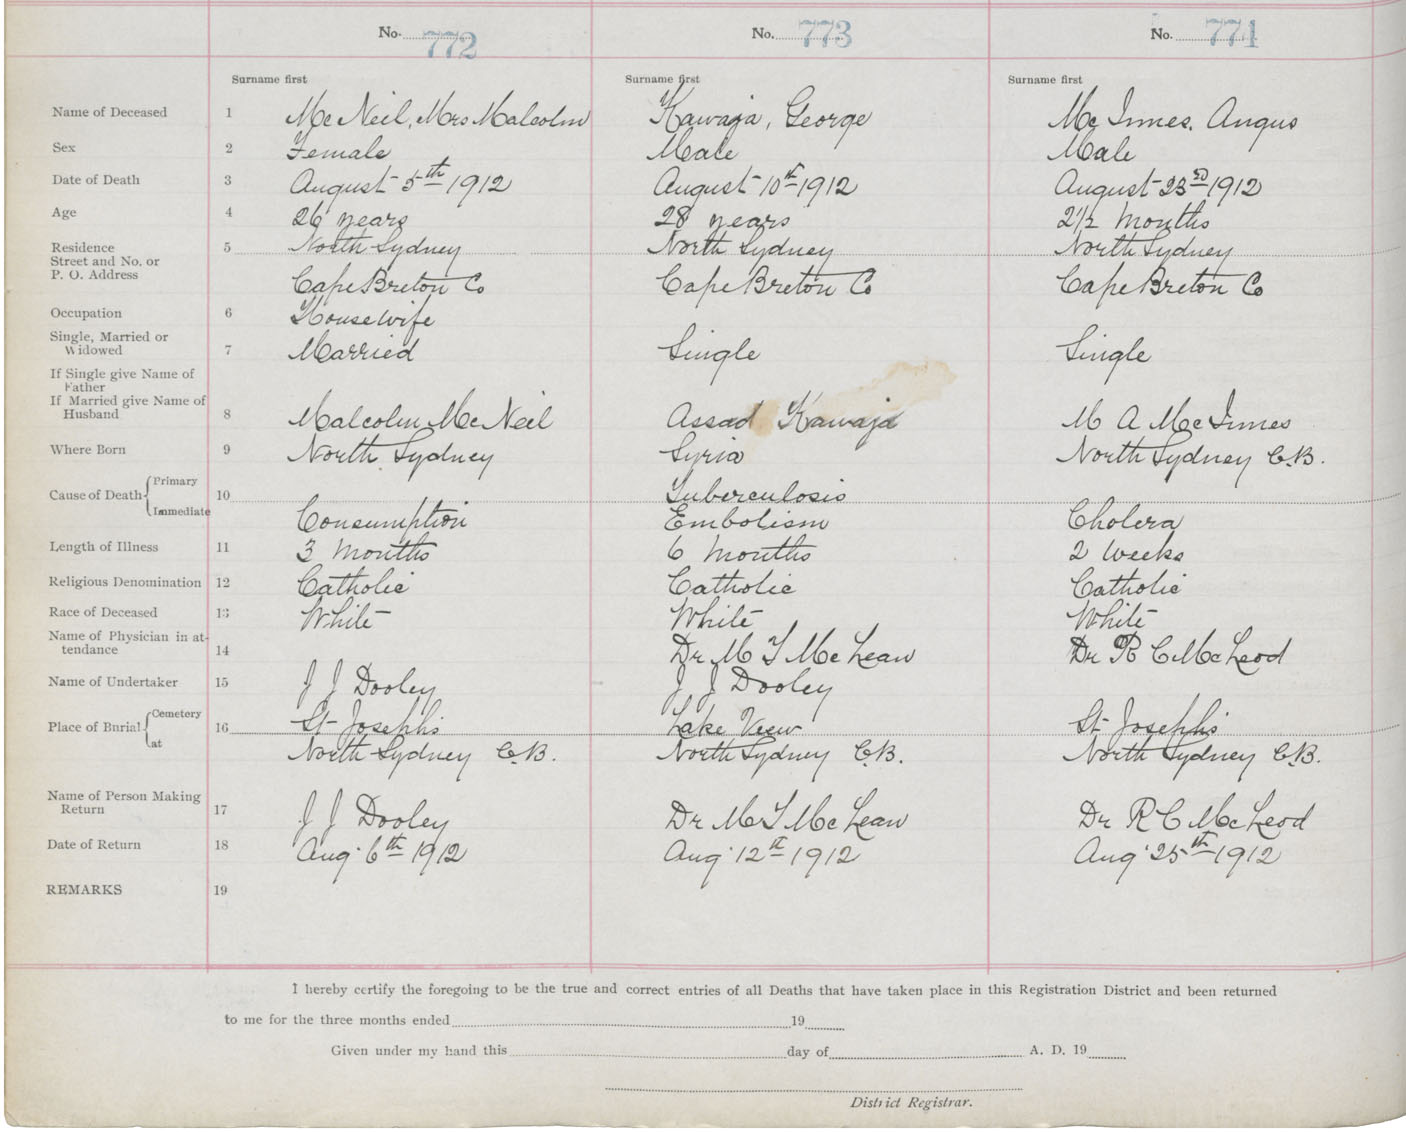 No. 772 No. 773 No. 774
Surname first Surname first Surname first
Name of Deceased 1 McNeil, Mrs Malcolm Kawaja, George McInnes, Angus
Sex 2 Female Male Male
Date of Death 3 August 5th 1912 August 10th 1912 August 23rd 1912
Age 4 26 years 28 years 2 1/2 Months
Residence 5 North Sydney North Sydney North Sydney
Street and No. or
P. O. Address Cape Breton Co Cape Breton Co Cape Breton Co
Occupation 6 Housewife
Single, Married or
Widowed 7 Married Single Single
If Single give Name of
Father
If Married give Name of
Husband 8 Malcolm McNeil Assad Kawaja M A McInnes
Where Born 9 North Sydney Syria North Sydney C.B.
Cause of Death { Primary 10 Tuberculosis
Immediate Consumption Embolism Cholera
Length of Illness 11 3 Months 6 Months 2 weeks
Religious Denomination 12 Catholic Catholic Catholic
Race of Deceased 13 White White White
Name of Physician in at-
tendance 14 Dr M T McLean Dr R C McLeod
Name of Undertaker 15 J J Dooley J J Dooley
Place of Burial { Cemetery 16 St Josephs Lake View St Josephs
at North Sydney C.B. North Sydney C.B. North Sydney C.B.
Name of Person Making
Return 17 J J Dooley Dr M T McLean Dr R C McLeod
Date of Return 18 Aug. 6th 1912 Aug. 12th 1912 Aug. 25th 1912
REMARKS 19
I hereby certify the foregoing to be the true and correct entries of all Deaths that have taken place in this Registration District and been returned
to me for the three months ended 19
Given under my hand this day of A. D. 19
District Registrar.